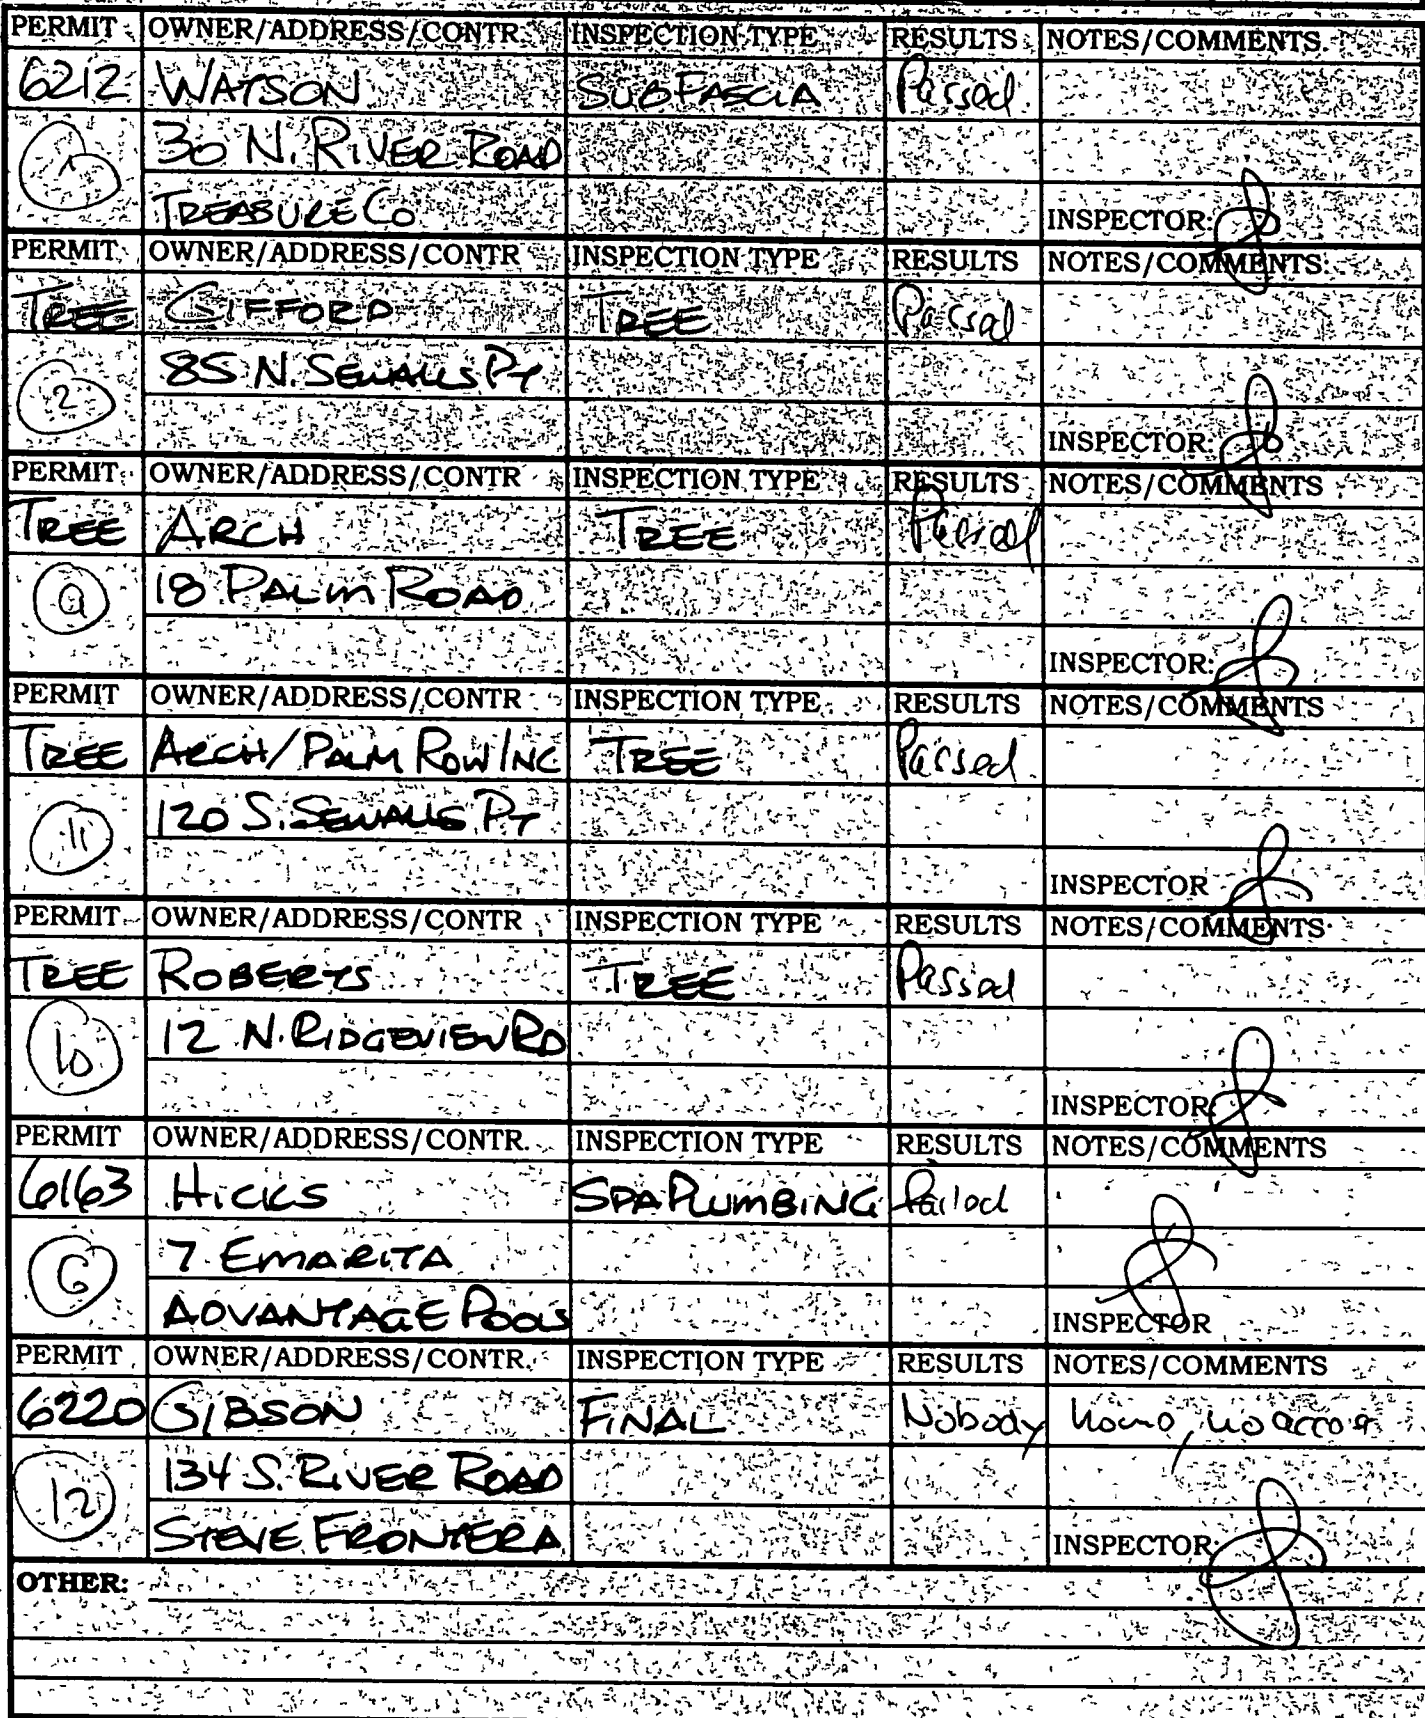 PERMIT OWNER/ADDRESS/CONTR. INSPECTION TYPE RESULTS NOTES/COMMENTS.
6212 WATSON SUBFASCIA Passed
1 30 N. RIVER ROAD
TREASURE CO INSPECTOR:
PERMIT OWNER/ADDRESS/CONTR INSPECTION TYPE RESULTS NOTES/COMMENTS:
TREE GIFFORD TREE Passed
2 85 N. SEWALLS PT
INSPECTOR:
PERMIT OWNER/ADDRESS/CONTR INSPECTION TYPE RESULTS NOTES/COMMENTS
TREE ARCH TREE Passed
9 18 PALM ROAD
INSPECTOR:
PERMIT OWNER/ADDRESS/CONTR INSPECTION TYPE RESULTS NOTES/COMMENTS
TREE ARCH/PALM ROW INC TREE Passed
11 120 S. SEWALLS PT
INSPECTOR
PERMIT OWNER/ADDRESS/CONTR INSPECTION TYPE RESULTS NOTES/COMMENTS
TREE ROBERTS TREE Passed
10 12 N. RIDGEVIEW RD
INSPECTOR:
PERMIT OWNER/ADDRESS/CONTR. INSPECTION TYPE RESULTS NOTES/COMMENTS
6163 HICKS SPA PLUMBING Failed
6 7 EMARITA
ADVANTAGE POOLS INSPECTOR
PERMIT OWNER/ADDRESS/CONTR. INSPECTION TYPE RESULTS NOTES/COMMENTS
6220 GIBSON FINAL Nobody home, no access
12 134 S. RIVER ROAD
STEVE FRONTERA INSPECTOR:
OTHER: